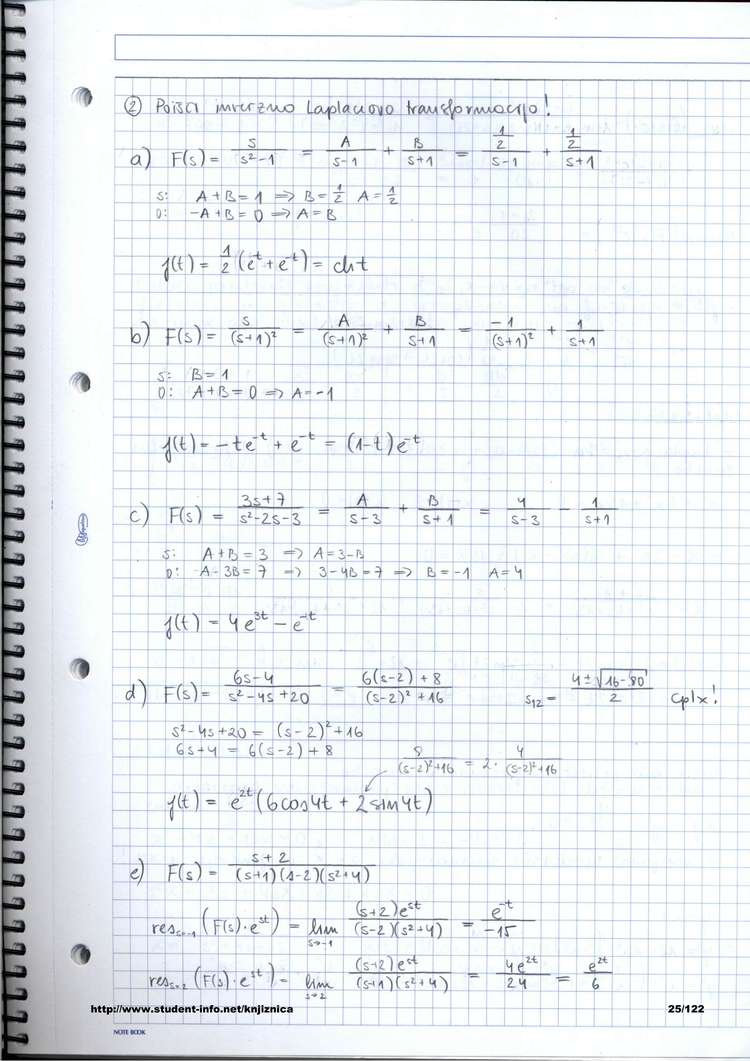 ② Poišči inverzno Laplaceovo transformacijo!
a) F(s) = s/(s²-1) = A/(s-1) + B/(s+1) = (1/2)/(s-1) + (1/2)/(s+1)
s: A + B = 1 ⇒ B = 1/2 A = 1/2
0: -A + B = 0 ⇒ A = B
f(t) = 1/2 (e^t + e^-t) = ch t
b) F(s) = s/(s+1)² = A/(s+1)² + B/(s+1) = -1/(s+1)² + 1/(s+1)
s: B = 1
0: A + B = 0 ⇒ A = -1
f(t) = -te^-t + e^-t = (1-t)e^-t
c) F(s) = (3s+7)/(s²-2s-3) = A/(s-3) + B/(s+1) = 4/(s-3) - 1/(s+1)
s: A + B = 3 ⇒ A = 3-B
0: A - 3B = 7 ⇒ 3-4B = 7 ⇒ B = -1 A = 4
f(t) = 4e^3t - e^-t
d) F(s) = (6s-4)/(s²-4s+20) = (6(s-2)+8)/((s-2)²+16) s₁₂ = (4±√(16-80))/2 cplx!
s²-4s+20 = (s-2)²+16
6s+4 = 6(s-2)+8 8/((s-2)²+16) = 2·4/((s-2)²+16)
f(t) = e^2t (6cos4t + 2sin4t)
e) F(s) = (s+2)/((s+1)(s-2)(s²+4))
res_s=-1 (F(s)·e^st) = lim_s→-1 (s+2)e^st/((s-2)(s²+4)) = e^-t/-15
res_s=2 (F(s)·e^st) = lim_s→2 (s+2)e^st/((s+1)(s²+4)) = 4e^2t/24 = e^2t/6
http://www.student-info.net/knjiznica 25/122
NOTE BOOK